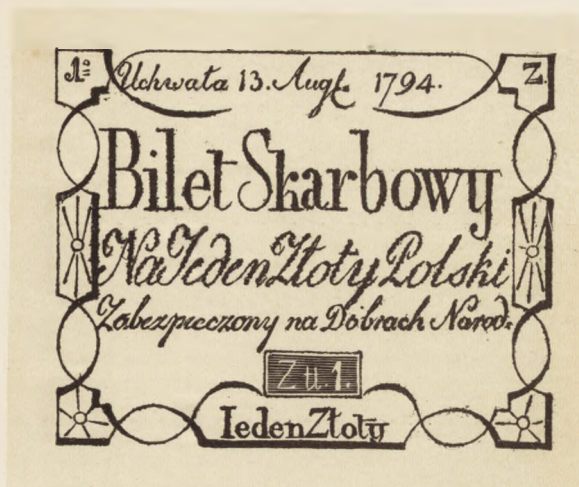 1º Uchwała 13. Augł. 1794. Z.
Bilet Skarbowy
Na Jeden Złoty Polski
Zabezpieczony na Dobrach Narod:
Zł. 1.
Ieden Złoty